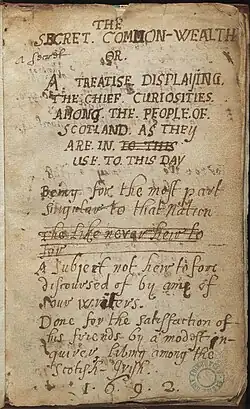 THE
SECRET. COMMON-WEALTH
a secret
OR.
A TREATISE DISPLAYING.
THE CHIEF CURIOSITIES.
AMONG THE PEOPLE OF.
SCOTLAND. AS THEY
ARE IN TO THIS
USE TO THIS DAY
Being for the most part
singular to that Nation
The like never here to
for
A Subject not heretofore
discoursed of by any of
our writers.
Done for the satisfaction of
his friends by a modest en-
quirer, living among the
Scotish-Irish.
1692